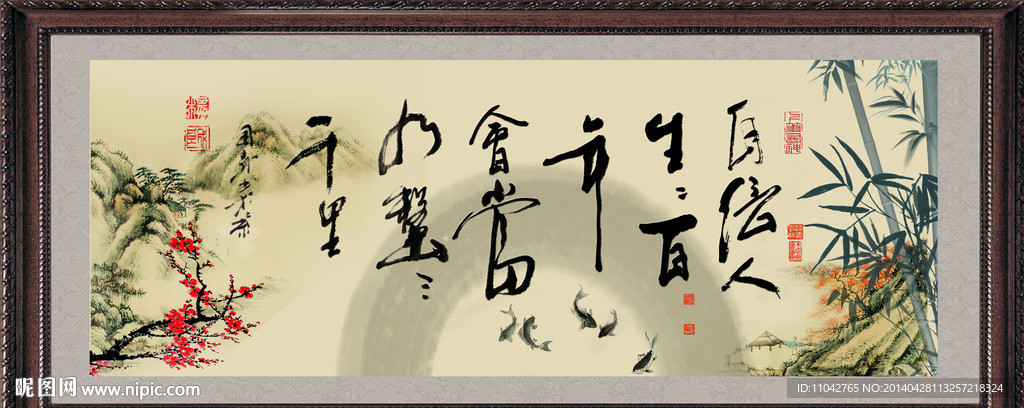 自信人
生二百
年
會當
水擊三
千里
昵图网 www.nipic.com
ID:11042765 NO:20140428113257218324